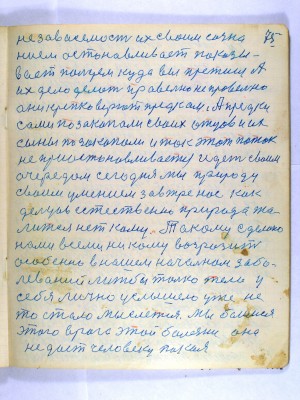 75
независемост их своим созна
нием останавливает показы-
вает почуем куда вы прешися А
их дело делот правелно неправелно
они крепко верют предкам, А предки
сами позакопали своих отцов и их
сыны позакопали и так этот поток
не приостанавливается идет своим
очередом сегодня мы природу
своим умением завтре нас как
делцов естественно природа жа-
лится нет кому. Такому сделано
нами всеми ни кому возразит
особенно в нашем началном забо-
левании литбы толко тело у
себя лично услышело уже не
то стало мыслется. Мы боимся
этого врага этой болезни она
не дает человеку покая